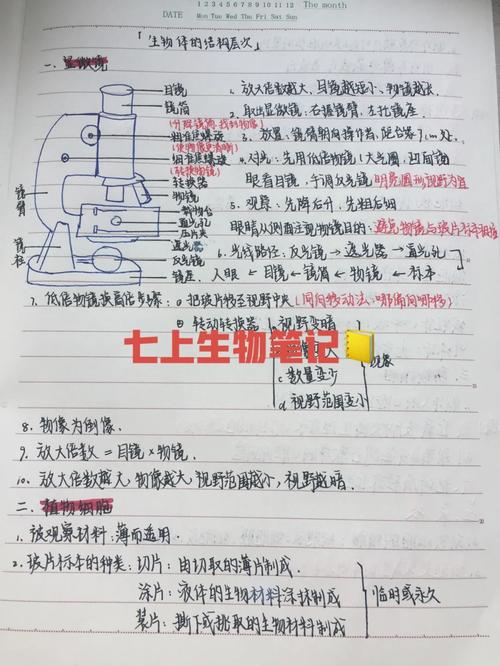 1 2 3 4 5 6 7 8 9 10 11 12 The month
DATE Mon Tue Wed Thu Fri Sat Sun
「生物体的结构层次」
一、显微镜
目镜
镜筒
(升降镜筒,找到物像)
粗准焦螺旋
(使物像更清晰)
细准焦螺旋
(转换物镜)
转换器
物镜
载物台
通光孔
压片夹
遮光器
反光镜
镜座
镜臂
镜柱
1、放大倍数越大、目镜越短小、物镜越长
2、取出显微镜:右握镜臂、左托镜座
3、放置、镜臂朝向操作者,距台缘7cm处.
4、对光:先用低倍物镜、大光圈、凹面镜
眼看目镜,手调反光镜 明亮圆形视野为宜
5、观察:先降后升,先粗后细
眼睛从侧面注视物镜目的:避免物镜与玻片标本相撞
6、光线路径:反光镜→遮光器→通光孔
人眼←目镜←镜筒←物镜←标本
7、低倍物镜换高倍步骤:①把玻片移至视野中央(同向移动法:哪偏向哪移)
②转动转换器
a、视野变暗
七上生物笔记
现象
c数量变少
d视野范围变小
8、物像为倒像.
9、放大倍数=目镜×物镜.
10、放大倍数越大,物像越大,视野范围越小,视野越暗.
二、植物细胞
1、被观察材料:薄而透明.
2、玻片标本的种类:切片:由切取的薄片制成.
涂片:液体的生物材料涂抹制成
装片:撕下或挑取的生物材料制成
临时或永久